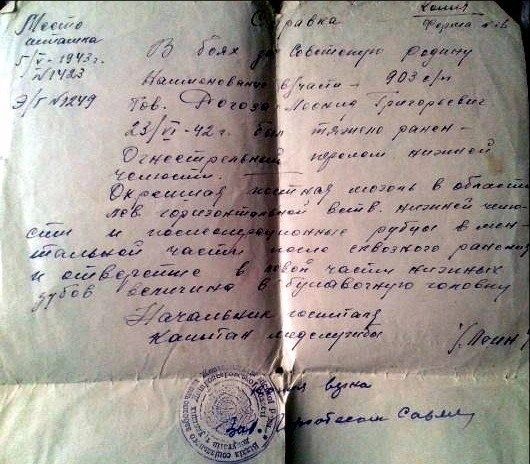 Копия
Место Справка Форма №
штампа
5/V-1943 г. В боях за Советскую родину
№1423 Наименование в/части - 903 с/п
Э/Г №1249 Тов. Погоза Леонид Григорьевич
23/VI-42 г. был тяжело ранен-
Огнестрельный перелом нижней
челюсти.
Окрепшая костная мозоль в области
лев. горизонтальной ветв. нижней челю-
сти и послеоперационные рубцы в мен-
тальной части после сквозного ранения
и отверстие в левой части нижних
зубов величина в булавочную головку
Начальник госпиталя
Капитан медслужбы
Зав.